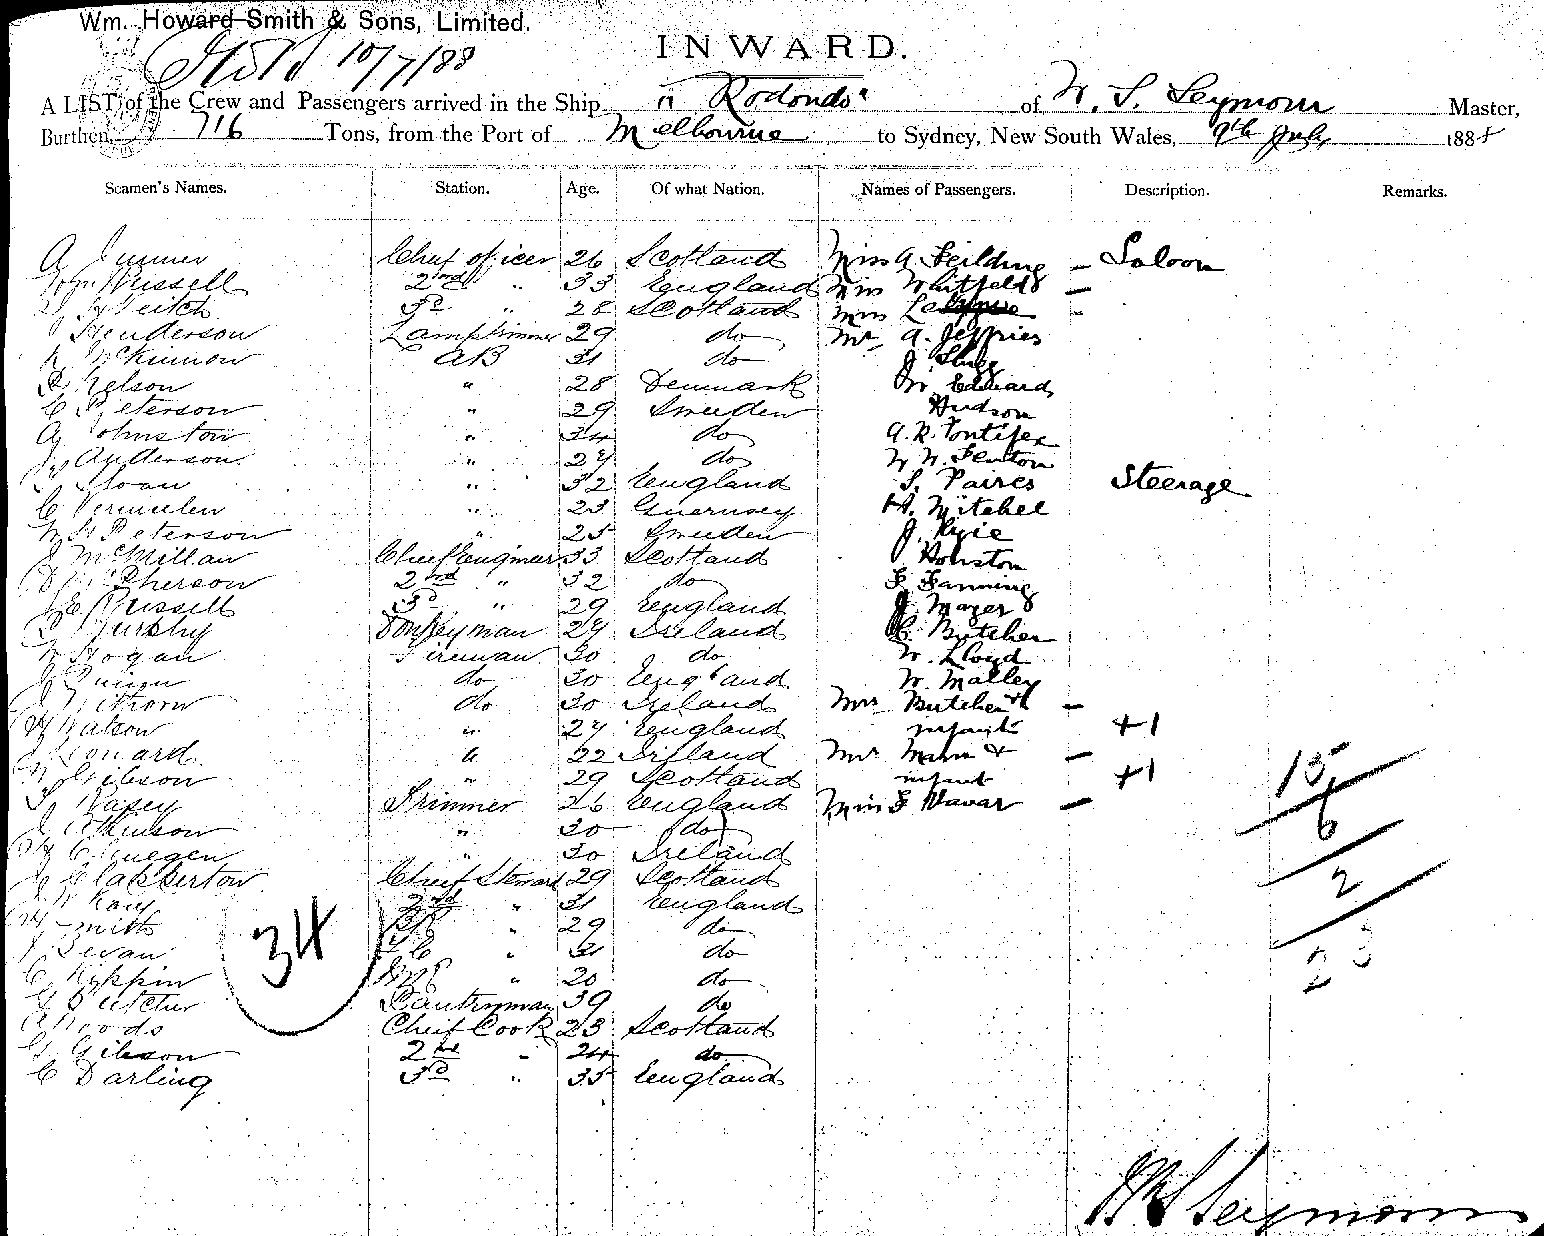 Wm. Howard Smith & Sons, Limited.
10/7/88
INWARD.
A LIST of the Crew and Passengers arrived in the Ship "Rodondo" of W. S. Seymour Master,
Burthen, 716 Tons, from the Port of Melbourne to Sydney, New South Wales, 9th July 1888
Seamen's Names. Station. Age. Of what Nation. Names of Passengers. Description. Remarks.
A Jenner Chief Officer 26 Scotland Miss A. Feilding – Saloon
Russell 2nd " 33 England Miss Whitfeld –
Veitch 3d " 28 Scotland Miss -
J Henderson Lamptrimmer 29 do Mr A. Jeffries
McKinnon AB 31 do J. Slugg
P Nelson " 28 Denmark W Edward
C Peterson " 29 Sweeden Hudson
A Johnston " 34 do A. R. Pontifex
Anderson " 27 do W. W. Fenton
Sloan " 32 England S. Paires Steerage
C Vermulen " 23 Guernsey H. Mitchel
Peterson " 25 Sweeden J. Ryie
J McMillan Chief Engineer 33 Scotland Houston
D McPherson 2nd " 32 do F Fanning
J E Russell 3d " 29 England J. Mayer
Murphy Donkeyman 27 Ireland C. Butcher
Hogan Fireman 30 do W. Lloyd
do 30 England W. Malley
do 30 Ireland Mrs Butcher & –
Watson " 27 England infant +1
J Leonard " 22 Ireland Mrs Mann & –
Gibson " 29 Scotland infant +1
15
Vasey Trimmer 26 England Miss F Navar –
J Atkinson " 30 do
6
" 30 Ireland
J Clapperton Chief Steward 29 Scotland
2
Kay 2nd " 31 England
Smith " 29 do
34
J Bevan " 31 do
C Kippin " 20 do
23
G Butcher Pantryman 39 do
Woods Cheif Cook 23 Scotland
G Gibson 2nd " 24 do
C Darling 3d " 35 England
W S Seymour